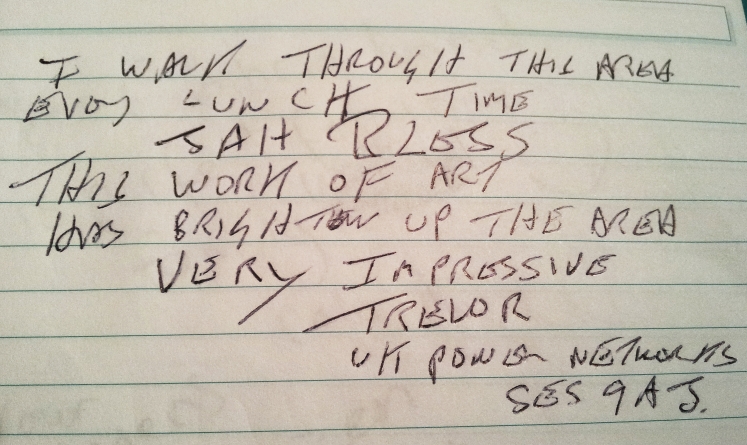 I WALK THROUGH THIS AREA
EVERY LUNCH TIME
JAH BLESS
THIS WORK OF ART
HAS BRIGHTEN UP THE AREA
VERY IMPRESSIVE
TREVOR
UK POWER NETWORKS
SE5 9AJ.